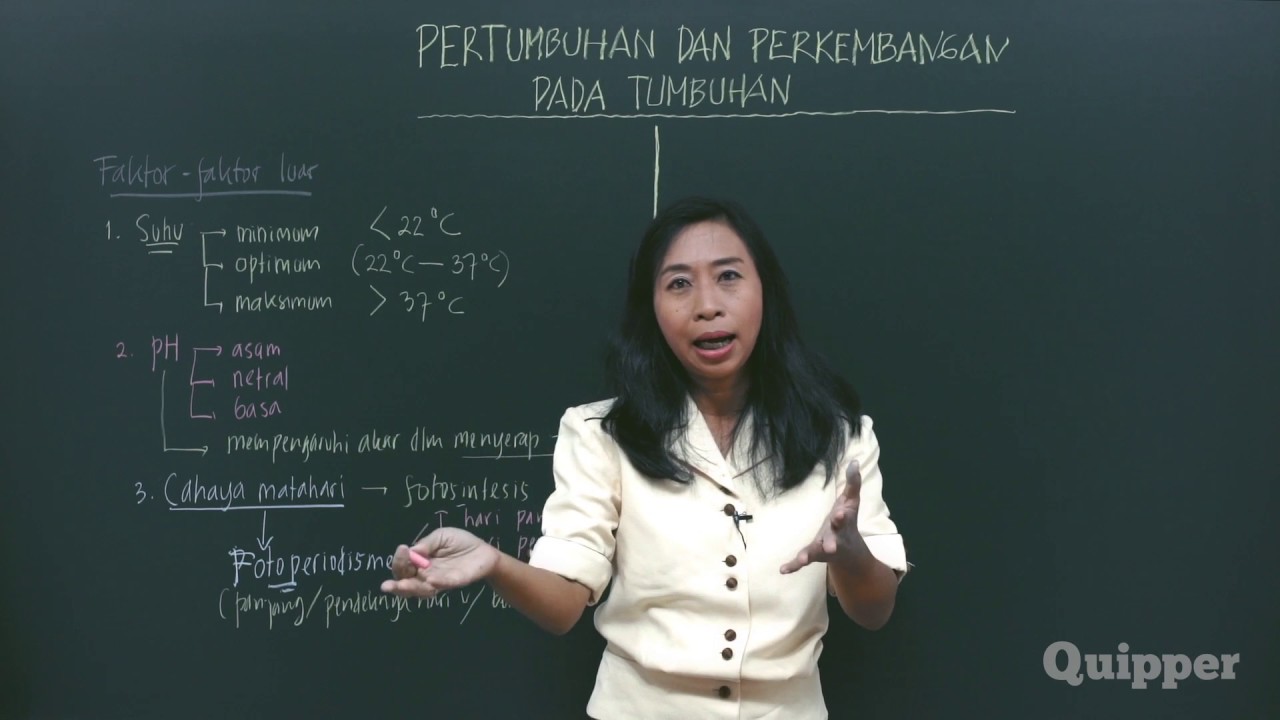 PERTUMBUHAN DAN PERKEMBANGAN
PADA TUMBUHAN
Faktor-faktor luar
1. Suhu → minimum < 22°C
optimum (22°C — 37°C)
maksimum > 37°C
2. pH → asam
netral
basa
mempengaruhi akar dlm menyerap
3. Cahaya matahari → fotosintesis
hari
Fotoperiodisme
(panjang/pendeknya hari
Quipper